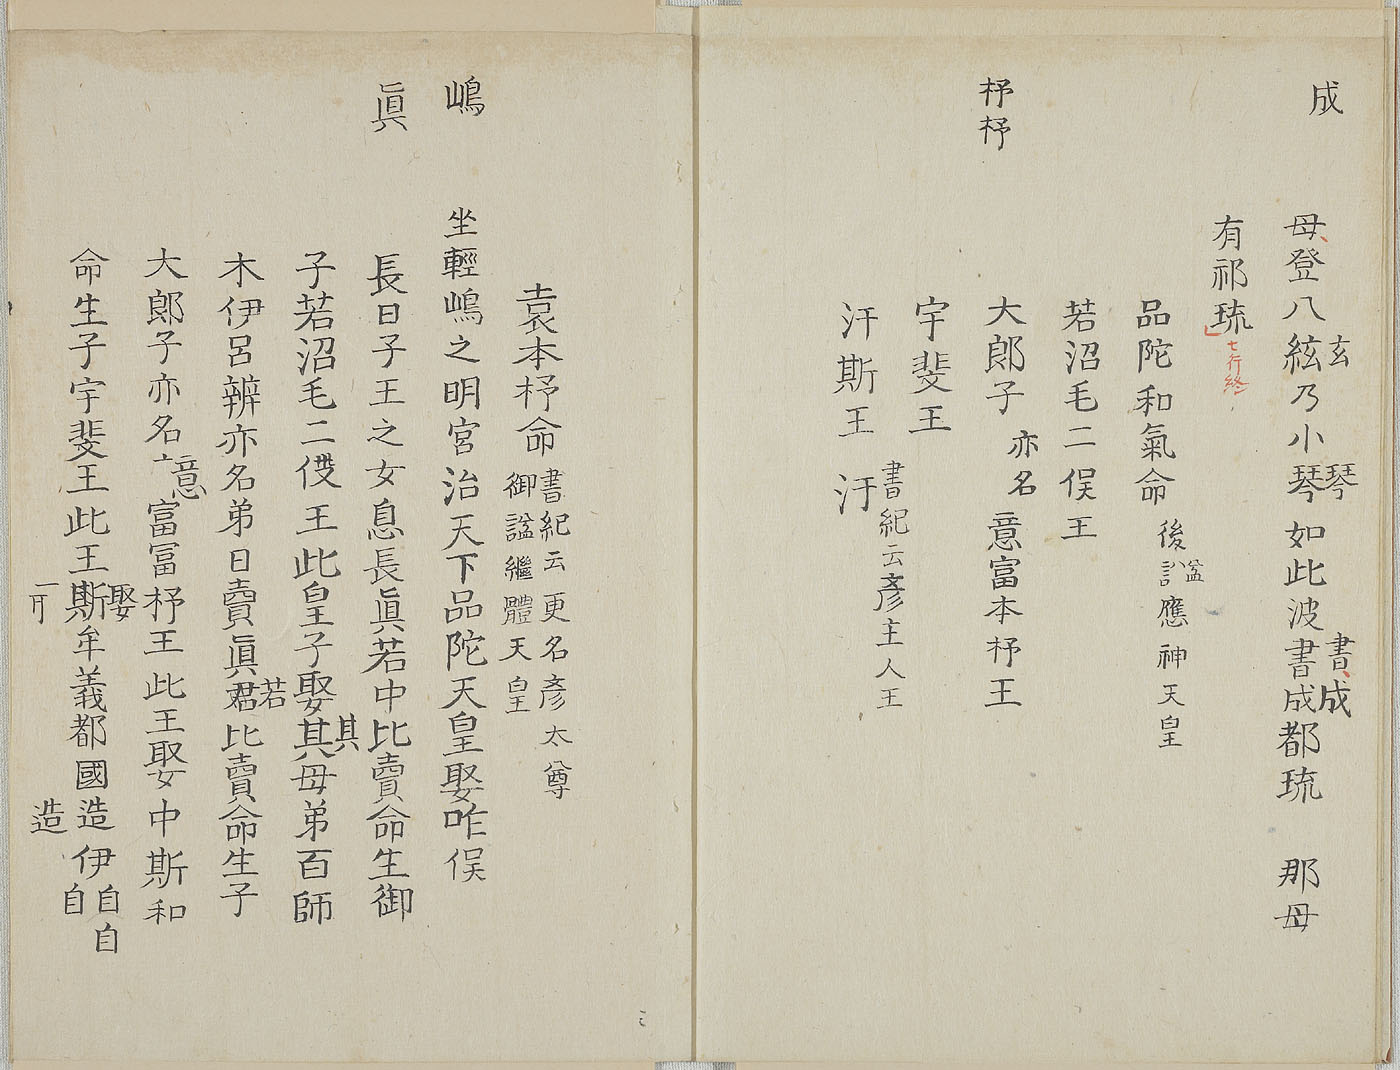 成
母登八絃乃小琴如此波書成都琉 那母
玄
琴
書成
有祁琉
七行終
品陀和氣命
後謚應神天皇
若沼毛二俣王
杼杼
大郎子 亦名 意富本杼王
宇斐王
汙斯王 汙
書紀云彦主人王
袁本杼命
書紀云更名彦太尊
御謚繼體天皇
嶋
坐輕嶋之明宮治天下品陀天皇娶咋俣
眞
長日子王之女息長眞若中比賣命生御
子若沼毛二俣王此皇子娶其母弟百師
其
木伊呂辨亦名弟日賣眞君比賣命生子
若
大郎子亦名意富冨杼王此王娶中斯和
命生子宇斐王此王斯牟義都國造伊自自
娶
自
造